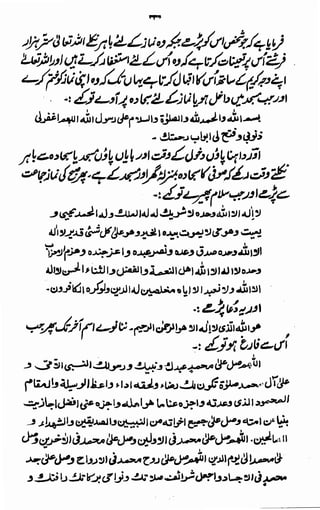 فرمایا ہے کہ جو شخص اس کو پڑھے جبکہ وہ نماز کے لئے باہر نکلے اللہ تعالیٰ ستر ہزار
فرشتے اس پر تعینات کرتا ہے کہ وہ اس کے لئے استغفار کرتے ہیں اور اللہ تعالےٰ
اپنے وجہ کریم کے ساتھ اس کا اقبال کرتا ہے یہاں تک کہ وہ اپنی نماز کو ختم کرے
اور جب مسجد میں داخل ہو یا نماز کے لئے سجادہ پر آوے تو کہے :-
بسم الله والحمد لله والصلوة والسلام على رسول الله اللهم اغفرلى
ذنوبى وفتح لى ابواب رحمتك -
اور داہنا پاؤں دخول کے وقت اور بایاں پاؤں مسجد یا سجادہ سے باہر
نکلتے وقت رکھے کہ صوفی کا سجادہ بمنزلہ گھر اور مسجد کے ہے۔ پھر صبح کی نماز جماعت
سے پڑھے اور جب سلام پھیرے تو کہے :-
لا اله الا الله وحده لا شريك له له الملك وله الحمد يحيى و
يميت وهو حى لا يموت بيده الخير وهو على كل شئى قدير لا اله
الا الله وحده صدق وعده ونصر عبده واعز جنده وهزم الاحزاب
وحده لا اله الا الله اهل النعمة والفضل والثناء الحسن لا اله
الا الله ولا نعبد الا اياه مخلصين له الدين ولو كره الكافرون -
اور یہ دعا پڑھے :-
هو الله الذى لا اله الا هو الرحمن الرحيم - ننانوے اسم آخر تک پھر جب
اُس سے فارغ ہو تو کہے :-
اللهم صل على محمد عبدك ونبيك ورسولك النبى الامى و
على آل محمد صلوة تكون لك رضاء ولحقه اداء واعط الوسيلة والمقام
المحمود الذى وعدته واجزه عنا ما هو اهله واجزه عنى افضل ما جازيت
نبيا عن امته وصل على جميع اخوانه من النبيين والصديقين والشهداء و
الصالحين - اللهم صل على محمد فى الاولين وصل على محمد فى الآخرين وصل
على محمد الى يوم الدين اللهم صل على روح محمد فى الارواح وصل على جسد
محمد فى الاجساد واجعل شرائف صلاتك ونوامى بركاتك ورافتك و